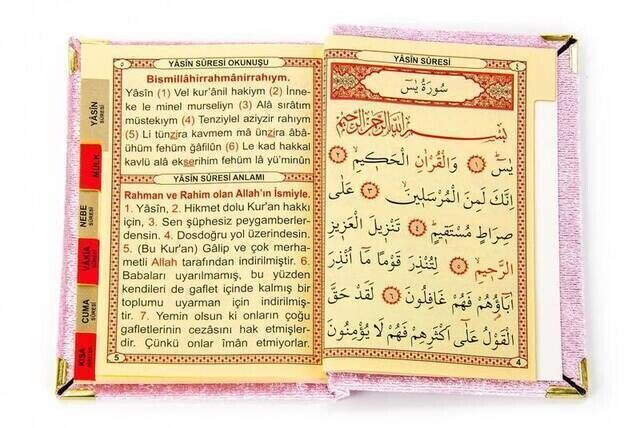 YÂSİN SÛRESİ OKUNUŞU
٥
Bismillâhirrahmânirrahıym.
Yâsîn (1) Vel kur'ânil hakiym (2) İnne-
ke le minel murseliyn (3) Alâ sırâtım
müstekıym (4) Tenziylel aziyzir rahıym
(5) Li tünzira kavmem mâ ünzira âbâ-
ühüm fehüm ğâfilûn (6) Le kad hakkal
kavlü alâ ekserihim fehüm lâ yü'minûn
YÂSİN SÛRESİ ANLAMI
Rahman ve Rahim olan Allah'ın İsmiyle.
1. Yâsîn, 2. Hikmet dolu Kur'an hakkı
için, 3. Sen şüphesiz peygamberler-
densin. 4. Dosdoğru yol üzerindesin.
5. (Bu Kur'an) Gâlip ve çok merha-
metli Allah tarafından indirilmiştir. 6.
Babaları uyarılmamış, bu yüzden
kendileri de gaflet içinde kalmış bir
toplumu uyarman için indirilmiş-
tir. 7. Yemin olsun ki onların çoğu
gafletlerinin cezasını hak etmişler-
dir. Çünkü onlar îmân etmiyorlar.
5
YÂSİN
SÛRESİ
MÜLK
NEBE
SÛRESİ
VAKIA
SÛRESİ
CUMA
SÛRESİ
KISA
YÂSİN SÛRESİ
٤
سُورَةُ يٰسٓ
بِسْمِ اللّٰهِ الرَّحْمٰنِ الرَّحِيمِ
يٰسٓ ١ وَالْقُرْاٰنِ الْحَك۪يمِ ٢
اِنَّكَ لَمِنَ الْمُرْسَل۪ينَ ٣ عَلٰى
صِرَاطٍ مُسْتَق۪يمٍ ٤ تَنْز۪يلَ الْعَز۪يزِ
الرَّح۪يمِ ٥ لِتُنْذِرَ قَوْمًا مَٓا اُنْذِرَ
اٰبَٓاؤُ۬هُمْ فَهُمْ غَافِلُونَ ٦ لَقَدْ حَقَّ
الْقَوْلُ عَلٰٓى اَكْثَرِهِمْ فَهُمْ لَا يُؤْمِنُونَ
4